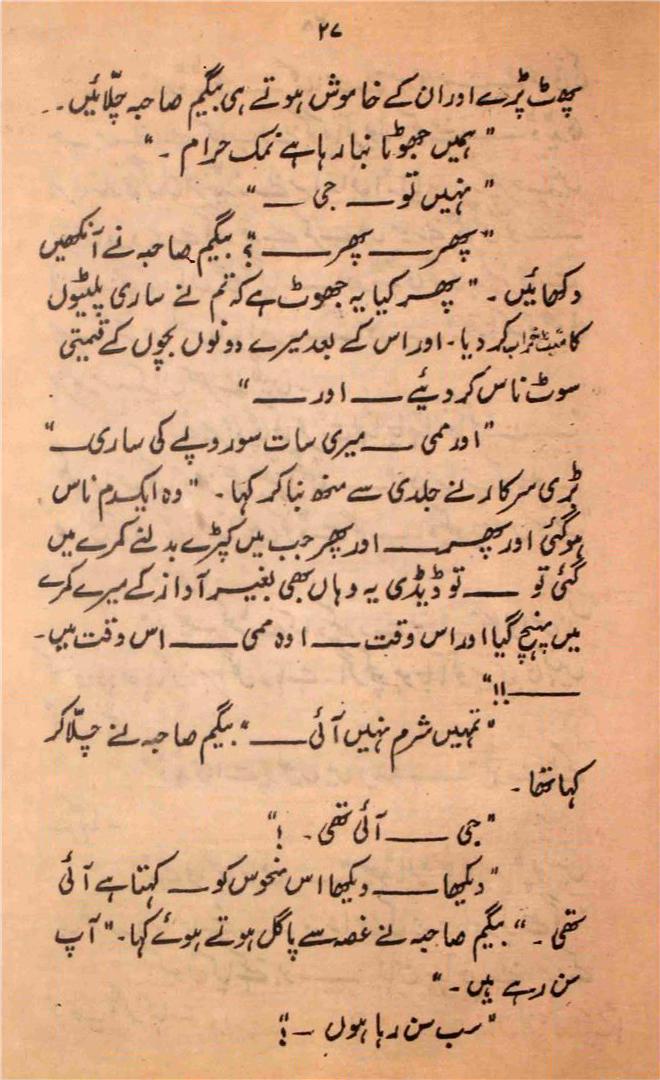 ۲۷
پھوٹ پڑے اور ان کے خاموش ہوتے ہی بیگم صاحبہ چلّائیں۔۔
"ہمیں جھوٹا بنا رہا ہے نمک حرام ۔"
"نہیں تو ــــ جی ــــ"
"پھر ــــ پھر ــــ؟" بیگم صاحبہ نے آنکھیں
دکھائیں ۔ "پھر کیا یہ جھوٹ ہے کہ تم نے ساری پلیٹوں
کا ستیٹ خراب کر دیا ۔ اور اس کے بعد میرے دونوں بچوں کے قیمتی
سوٹ ناس کر دیئے ــــ اور ــــ"
"اور ممی ــــ میری سات سو روپے کی ساری ــــ"
بڑی سرکار نے جلدی سے منھ بنا کر کہا ۔ "وہ ایکدم ناس
ہو گئی اور پھر ــــ اور پھر جب میں کپڑے بدلنے کمرے میں
گئی تو ــــ تو ڈیڈی یہ وہاں بھی بغیر آواز کے میرے کمرے
میں پہنچ گیا اور اس وقت ــــ اوہ ممی ــــ اس وقت میں ۔
ــــ!!"
"تمہیں شرم نہیں آئی ــــ" بیگم صاحبہ نے چلّا کر
کہا تھا ۔
"جی ــــ آئی تھی ۔ !"
"دیکھا ــــ دیکھا اس منحوس کو ــــ کہتا ہے آئی
تھی ۔" بیگم صاحبہ نے غصہ سے پاگل ہوتے ہوئے کہا ۔ "آپ
سن رہے ہیں ۔"
"سب سن رہا ہوں ــــ!"